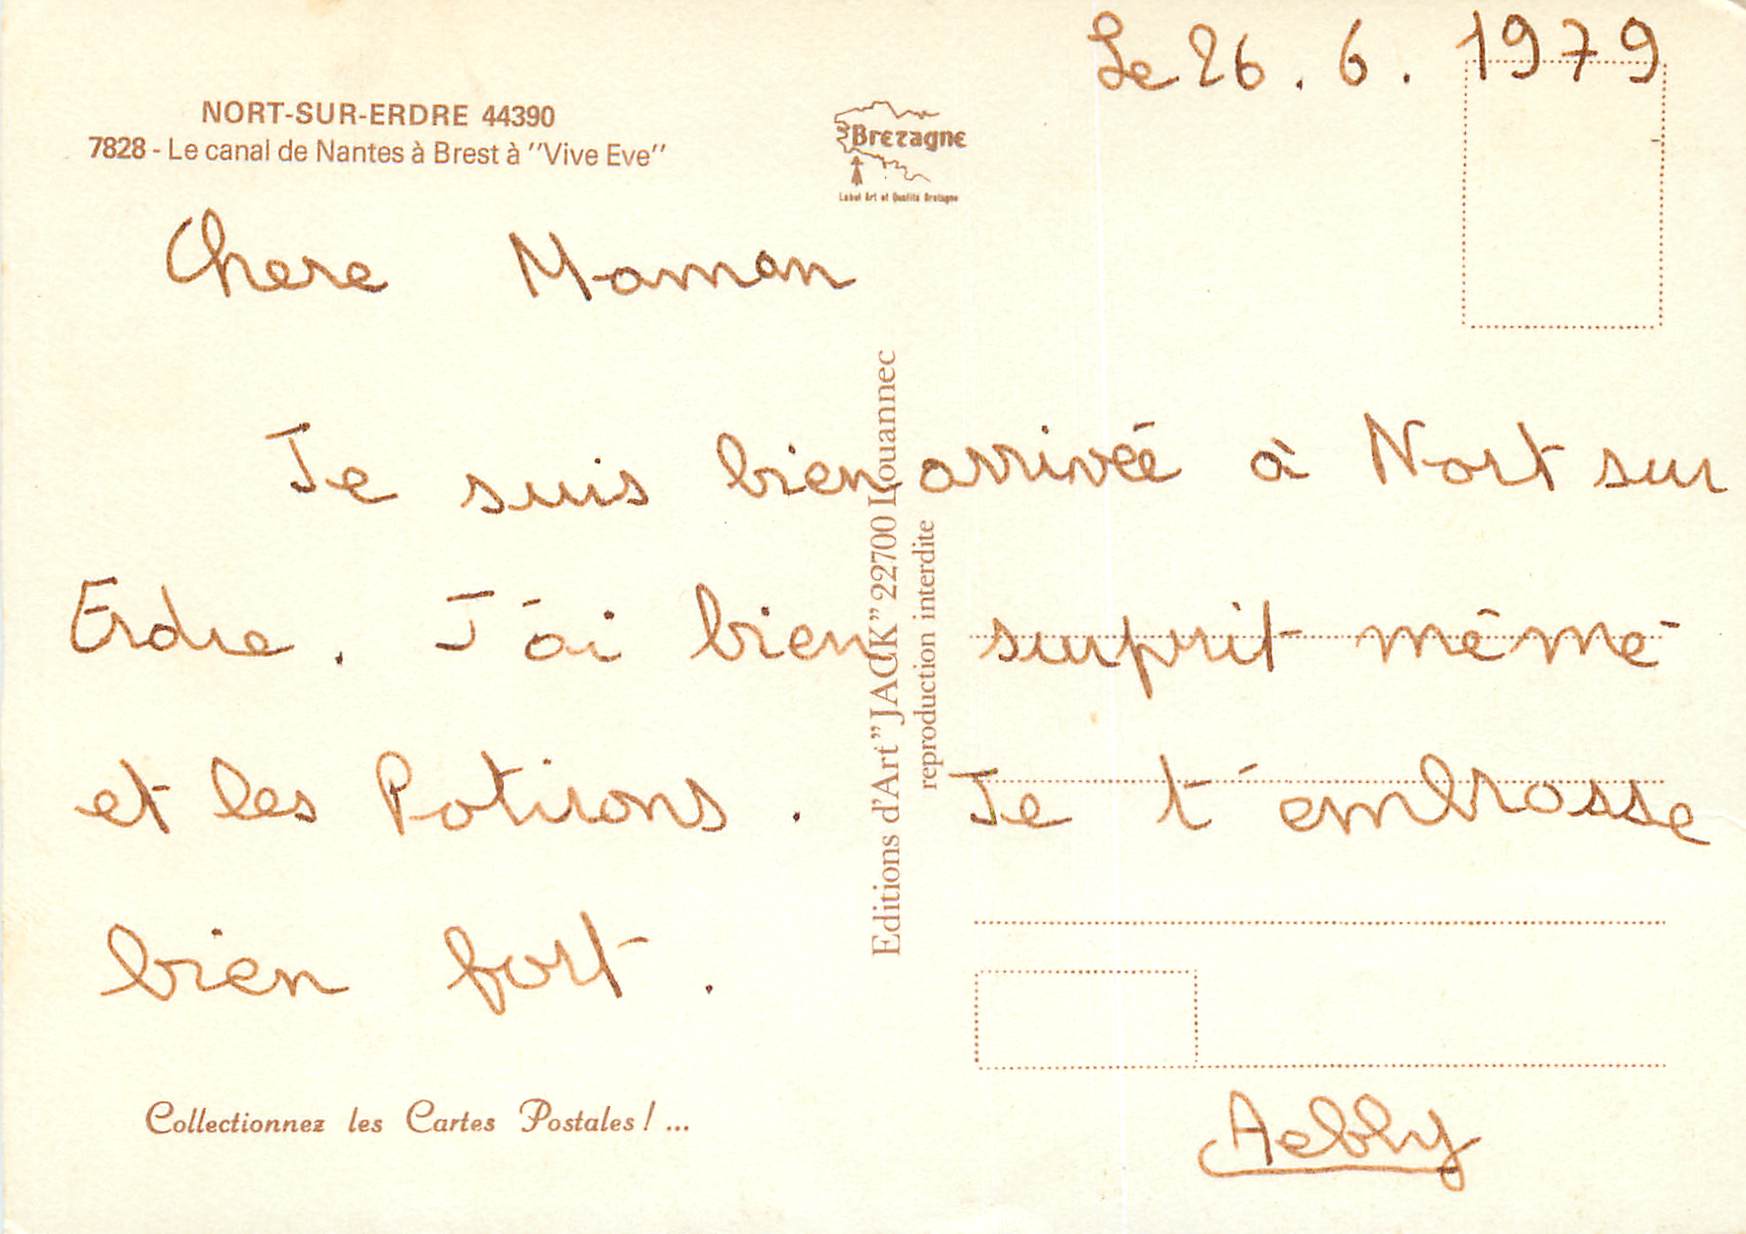 Le 26. 6. 1979
NORT-SUR-ERDRE 44390
7828 - Le canal de Nantes à Brest à "Vive Eve"
Bretagne
Label Art et Qualité Bretagne
Chere Maman
Je suis bien arrivée à Nort sur
Erdre. J'ai bien surprit mémé
et les Potirons. Je t'embrasse
bien fort.
Editions d'Art "JACK" 22700 Louannec
reproduction interdite
Collectionnez les Cartes Postales ! ...
Aebly